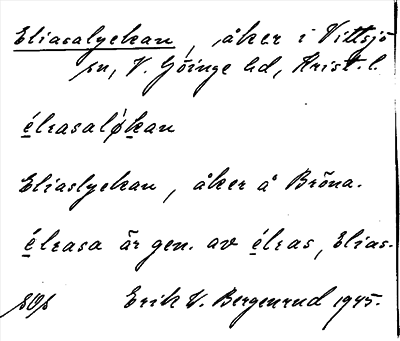 Eliasalyckan, åker i Vittsjö
sn, V. Göinge hd, Krist. l.
élɪasaløkan
Eliaslyckan, åker å Bröna.
élɪasa är gen. av élɪas, Elias.
Erik V. Bergenrud 1945.